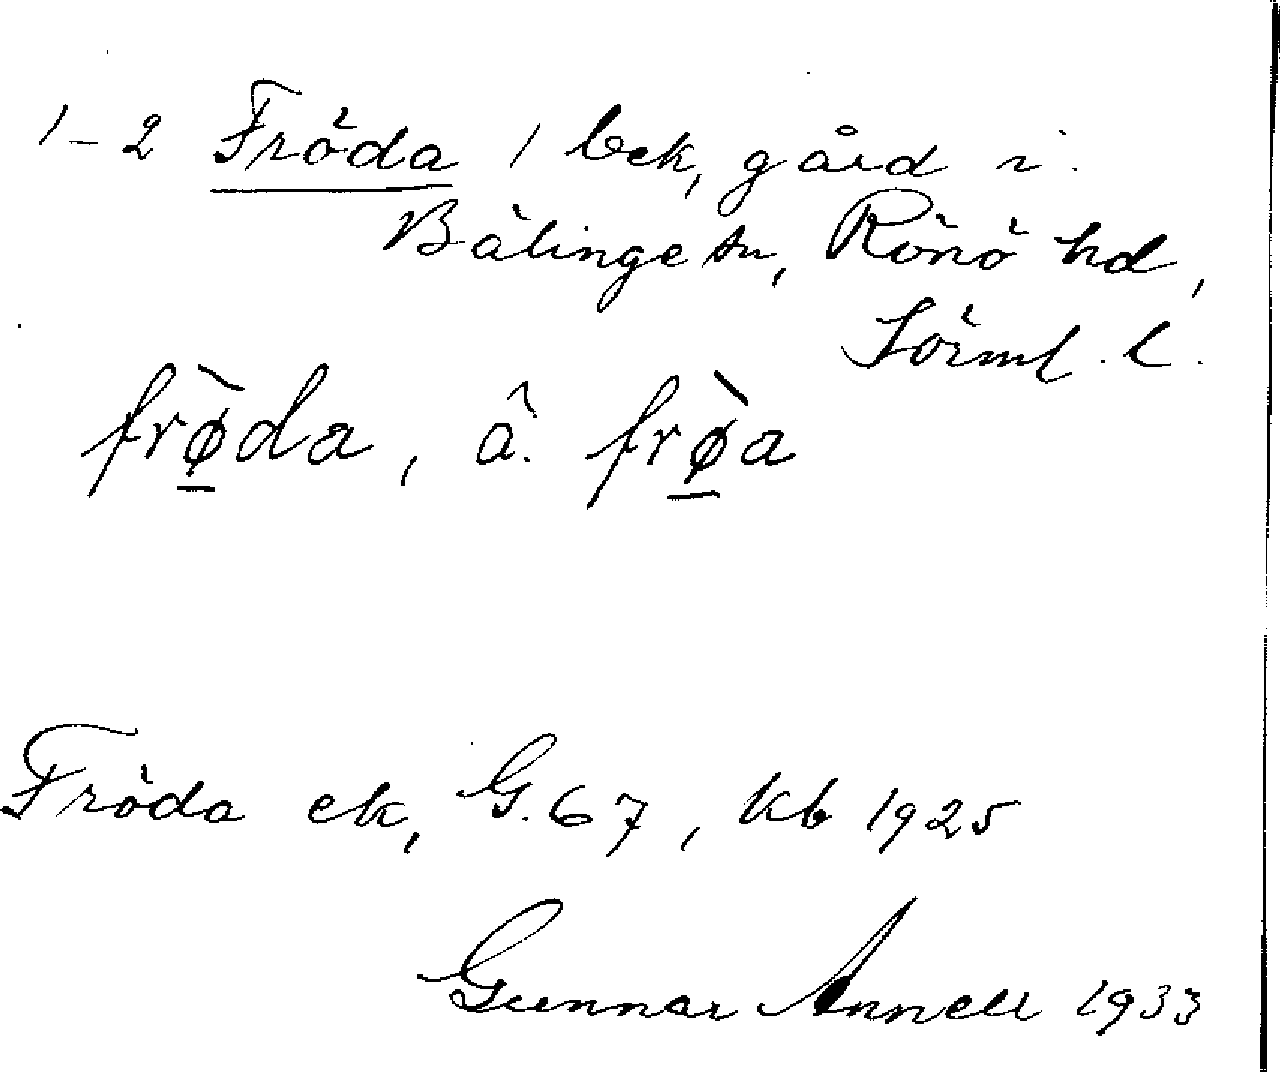 1-2 Fröda / bek, gård i
Bälinge sn, Rönö hd,
Sörml. l.
frø̀da, â. frø̀a
Fröda ek, G. 67, kb 1925
Gunnar Annell 1933